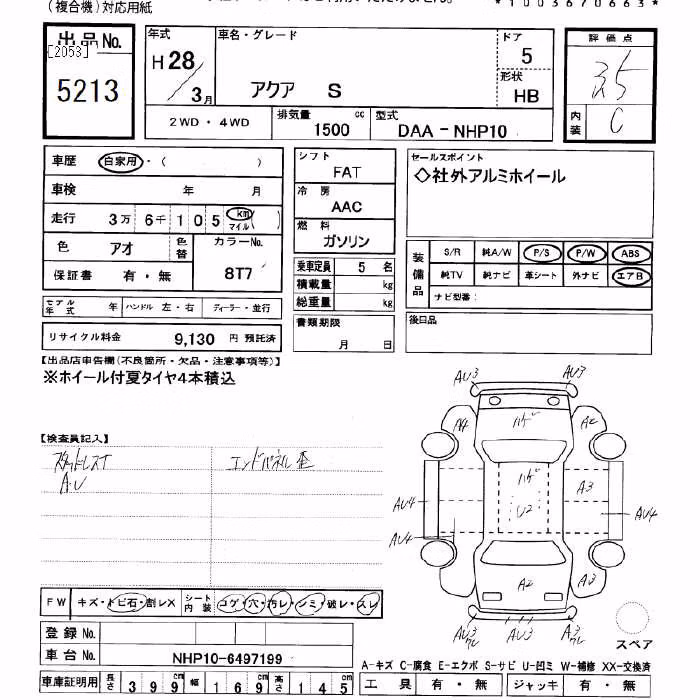 (複合機)対応用紙
*1003670663*
出品No.
[2053]
5213
年式
H28/3月
車名・グレード
アクア S
ドア
5
形状
HB
2WD・4WD
排気量 cc
1500
型式
DAA-NHP10
評価点
3.5
内装
C
車歴 自家用・( )
車検 年 月
走行 3万6千105 km マイル( )
色 アオ 色替 カラーNo.
8T7
保証書 有・無
モデル年式 年 ハンドル 左・右 ディーラー・並行
リサイクル料金 9,130 円 預託済
シフト
FAT
冷房
AAC
燃料
ガソリン
乗車定員 5 名
積載量 kg
総重量 kg
書類期限
月 日
セールスポイント
◇社外アルミホイール
装備品
S/R 純A/W P/S P/W ABS
純TV 純ナビ 革シート 外ナビ エアB
ナビ型番:
後日品
【出品店申告欄(不良箇所・欠品・注意事項等)】
※ホイール付夏タイヤ4本積込
【検査員記入】
スタッドレスT
A・U
エンドパネル歪
AU3 AU3
A4 ハゲ A2
ハゲ A3
AU4 U2 AU4
AU4
A2 A3
AU3 AU3 A3
ワレ ワレ
スペア
FW キズ・トビ石・割レX シート内装 コゲ・穴・汚レ・シミ・破レ・スレ
登録No.
車台No. NHP10-6497199
車庫証明用 長さ 399 幅 169 高さ 145
A-キズ C-腐食 E-エクボ S-サビ U-凹ミ W-補修 XX-交換済
工具 有・無 ジャッキ 有・無